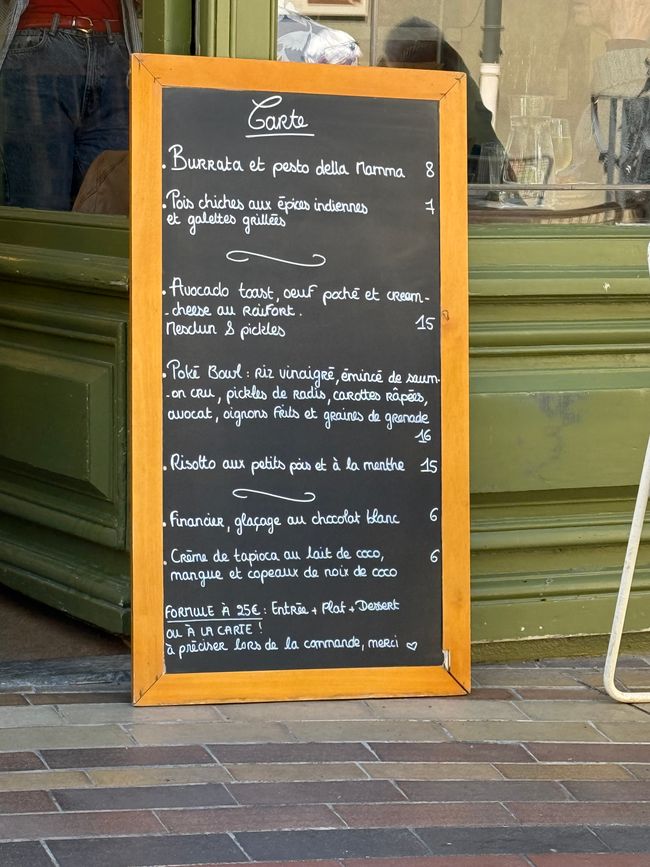 Carte
. Burrata et pesto della Mamma 8
. Pois chiches aux épices indiennes 7
et galettes grillées
. Avocado toast, oeuf poché et cream-
-cheese au raifort.
Mesclun & pickles 15
. Poké Bowl : riz vinaigré, émincé de saum-
-on cru, pickles de radis, carottes râpées,
avocat, oignons frits et graines de grenade
16
. Risotto aux petits pois et à la menthe 15
. Financier, glaçage au chocolat blanc 6
. Crème de tapioca au lait de coco, 6
mangue et copeaux de noix de coco
FORMULE À 25€ : Entrée + Plat + Dessert
OU À LA CARTE !
à préciser lors de la commande, merci ♡